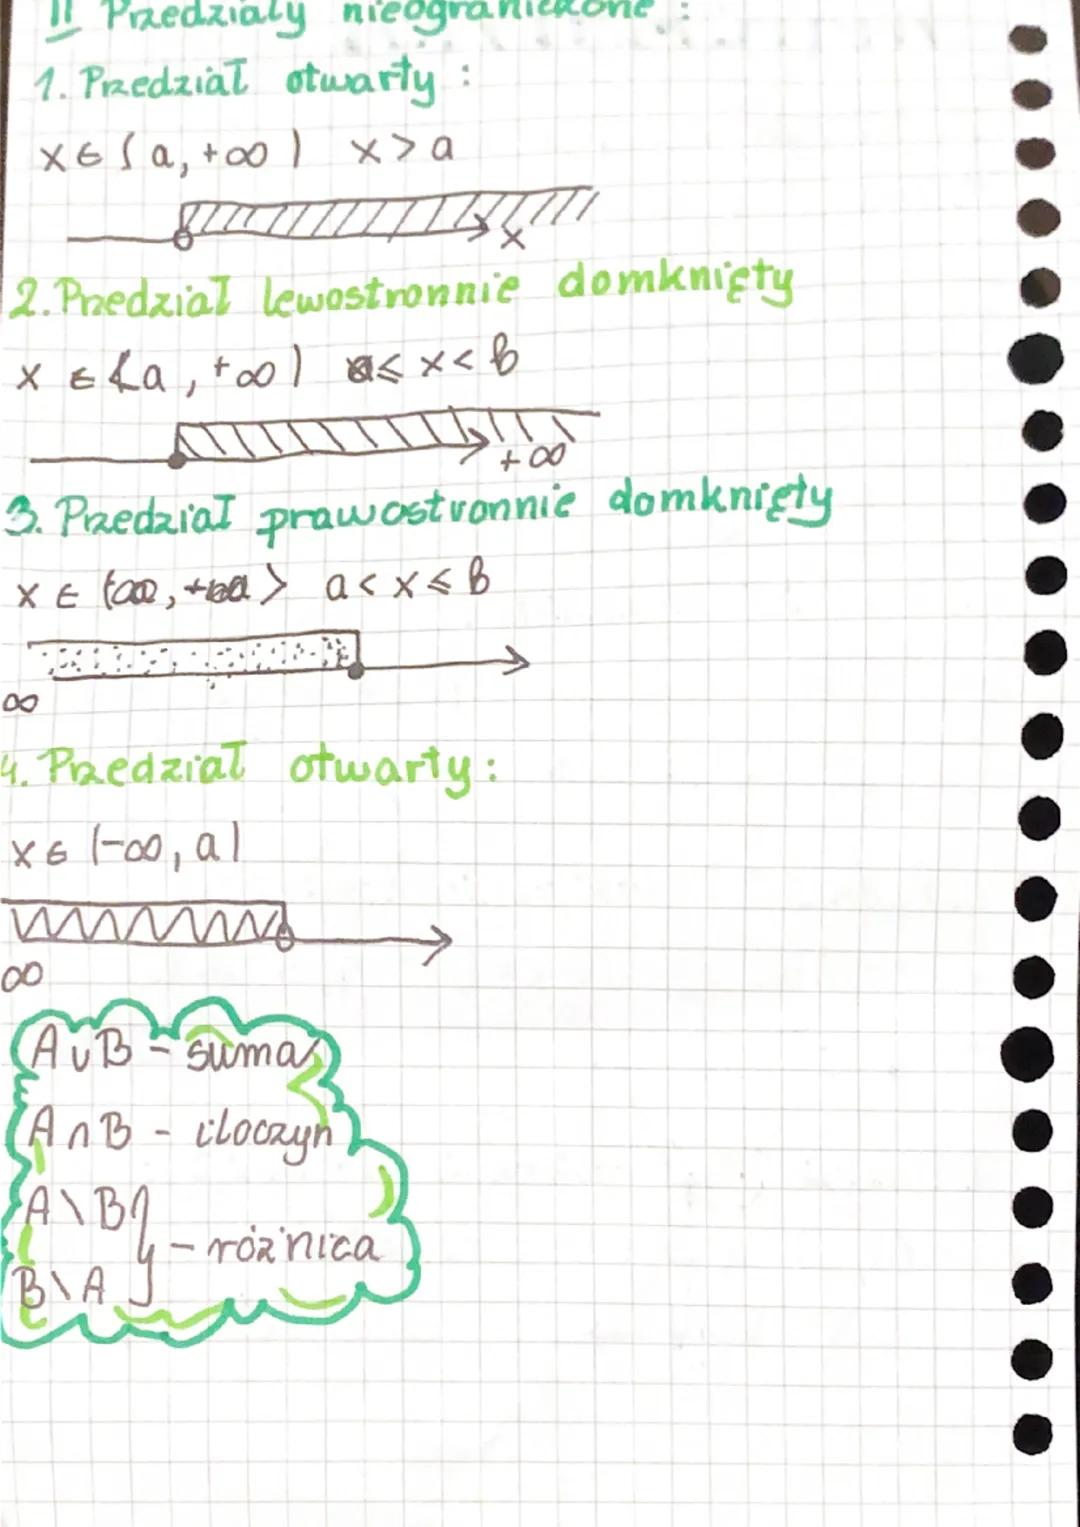 II Przedziały nieograniczone :
1. Przedział otwarty :
x∈(a, +∞) x>a
x
2. Przedział lewostronnie domknięty
x ∈ <a, +∞) a⩽ x< b
+∞
3. Przedział prawostronnie domknięty
x ∈ a> a< x ⩽ b
∞
4. Przedział otwarty:
x∈ (-∞, a)
∞
A∪B - suma
A∩B - iloczyn
A\B
} - różnica
B\A